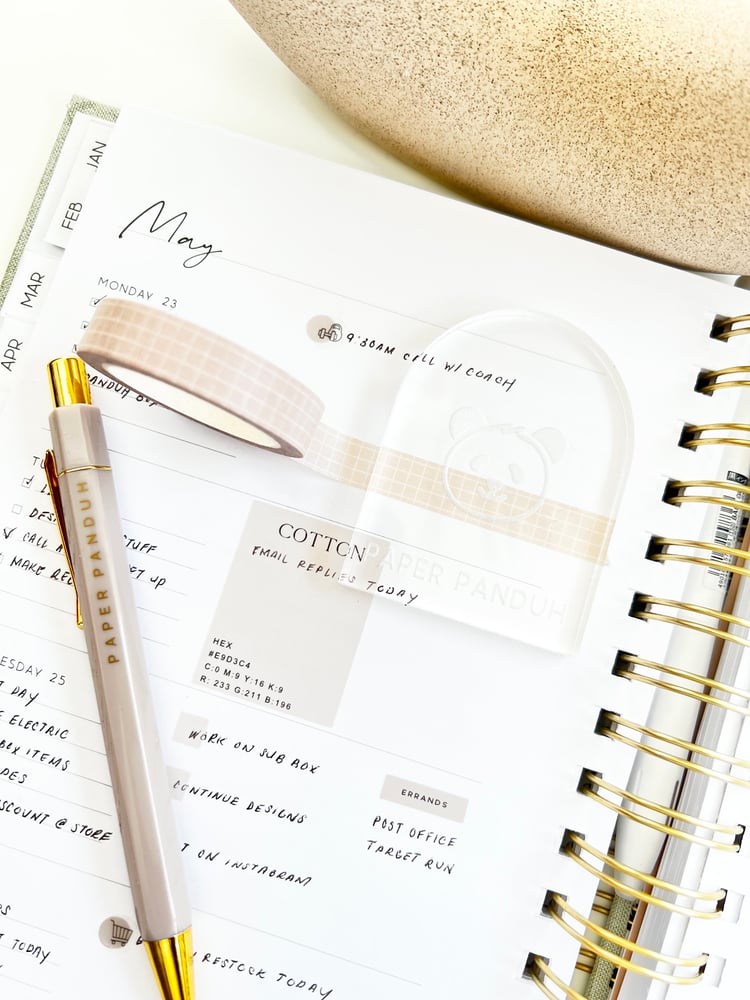 JAN
FEB
MAR
APR
May
MONDAY 23
9:30AM CALL W/ COACH
PANDUH BOX
COTTON
EMAIL REPLIES TODAY
PAPER PANDUH
PAPER PANDUH
DES
STUFF
CALL
MAKE
SET UP
HEX
#E9D3C4
C:0 M:9 Y:16 K:9
R: 233 G:211 B:196
25
DAY
ELECTRIC
BOX ITEMS
@ STORE
WORK ON SUB BOX
CONTINUE DESIGNS
ON INSTAGRAM
ERRANDS
POST OFFICE
TARGET RUN
TODAY
RESTOCK TODAY